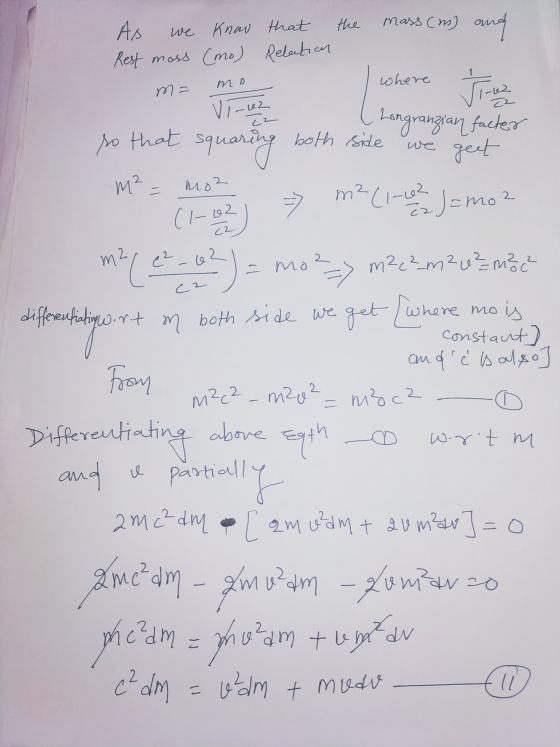 As we Know that the mass (m) and
Rest mass (mo) Relation
m = mo / √(1 - v²/c²) [where 1 / √(1 - v²/c²)
Longranzian factor
so that squaring both side we geet
m² = mo² / (1 - v²/c²) ⇒ m² (1 - v²/c²) = mo²
m² ( (c² - v²) / c² ) = mo² ⇒ m²c² - m²v² = m²oc²
differentiating w.r.t m both side we get [where mo is
constant]
and 'c' is also]
From
m²c² - m²v² = m²oc² — (1)
Differentiating above Eqth — (1) w.r.t m
and v partially
2mc²dm - [2mv²dm + 2vm²dv] = 0
2mc²dm - 2mv²dm - 2vm²dv = 0
mc²dm = mv²dm + vm²dv
c²dm = v²dm + mvdv — (11)